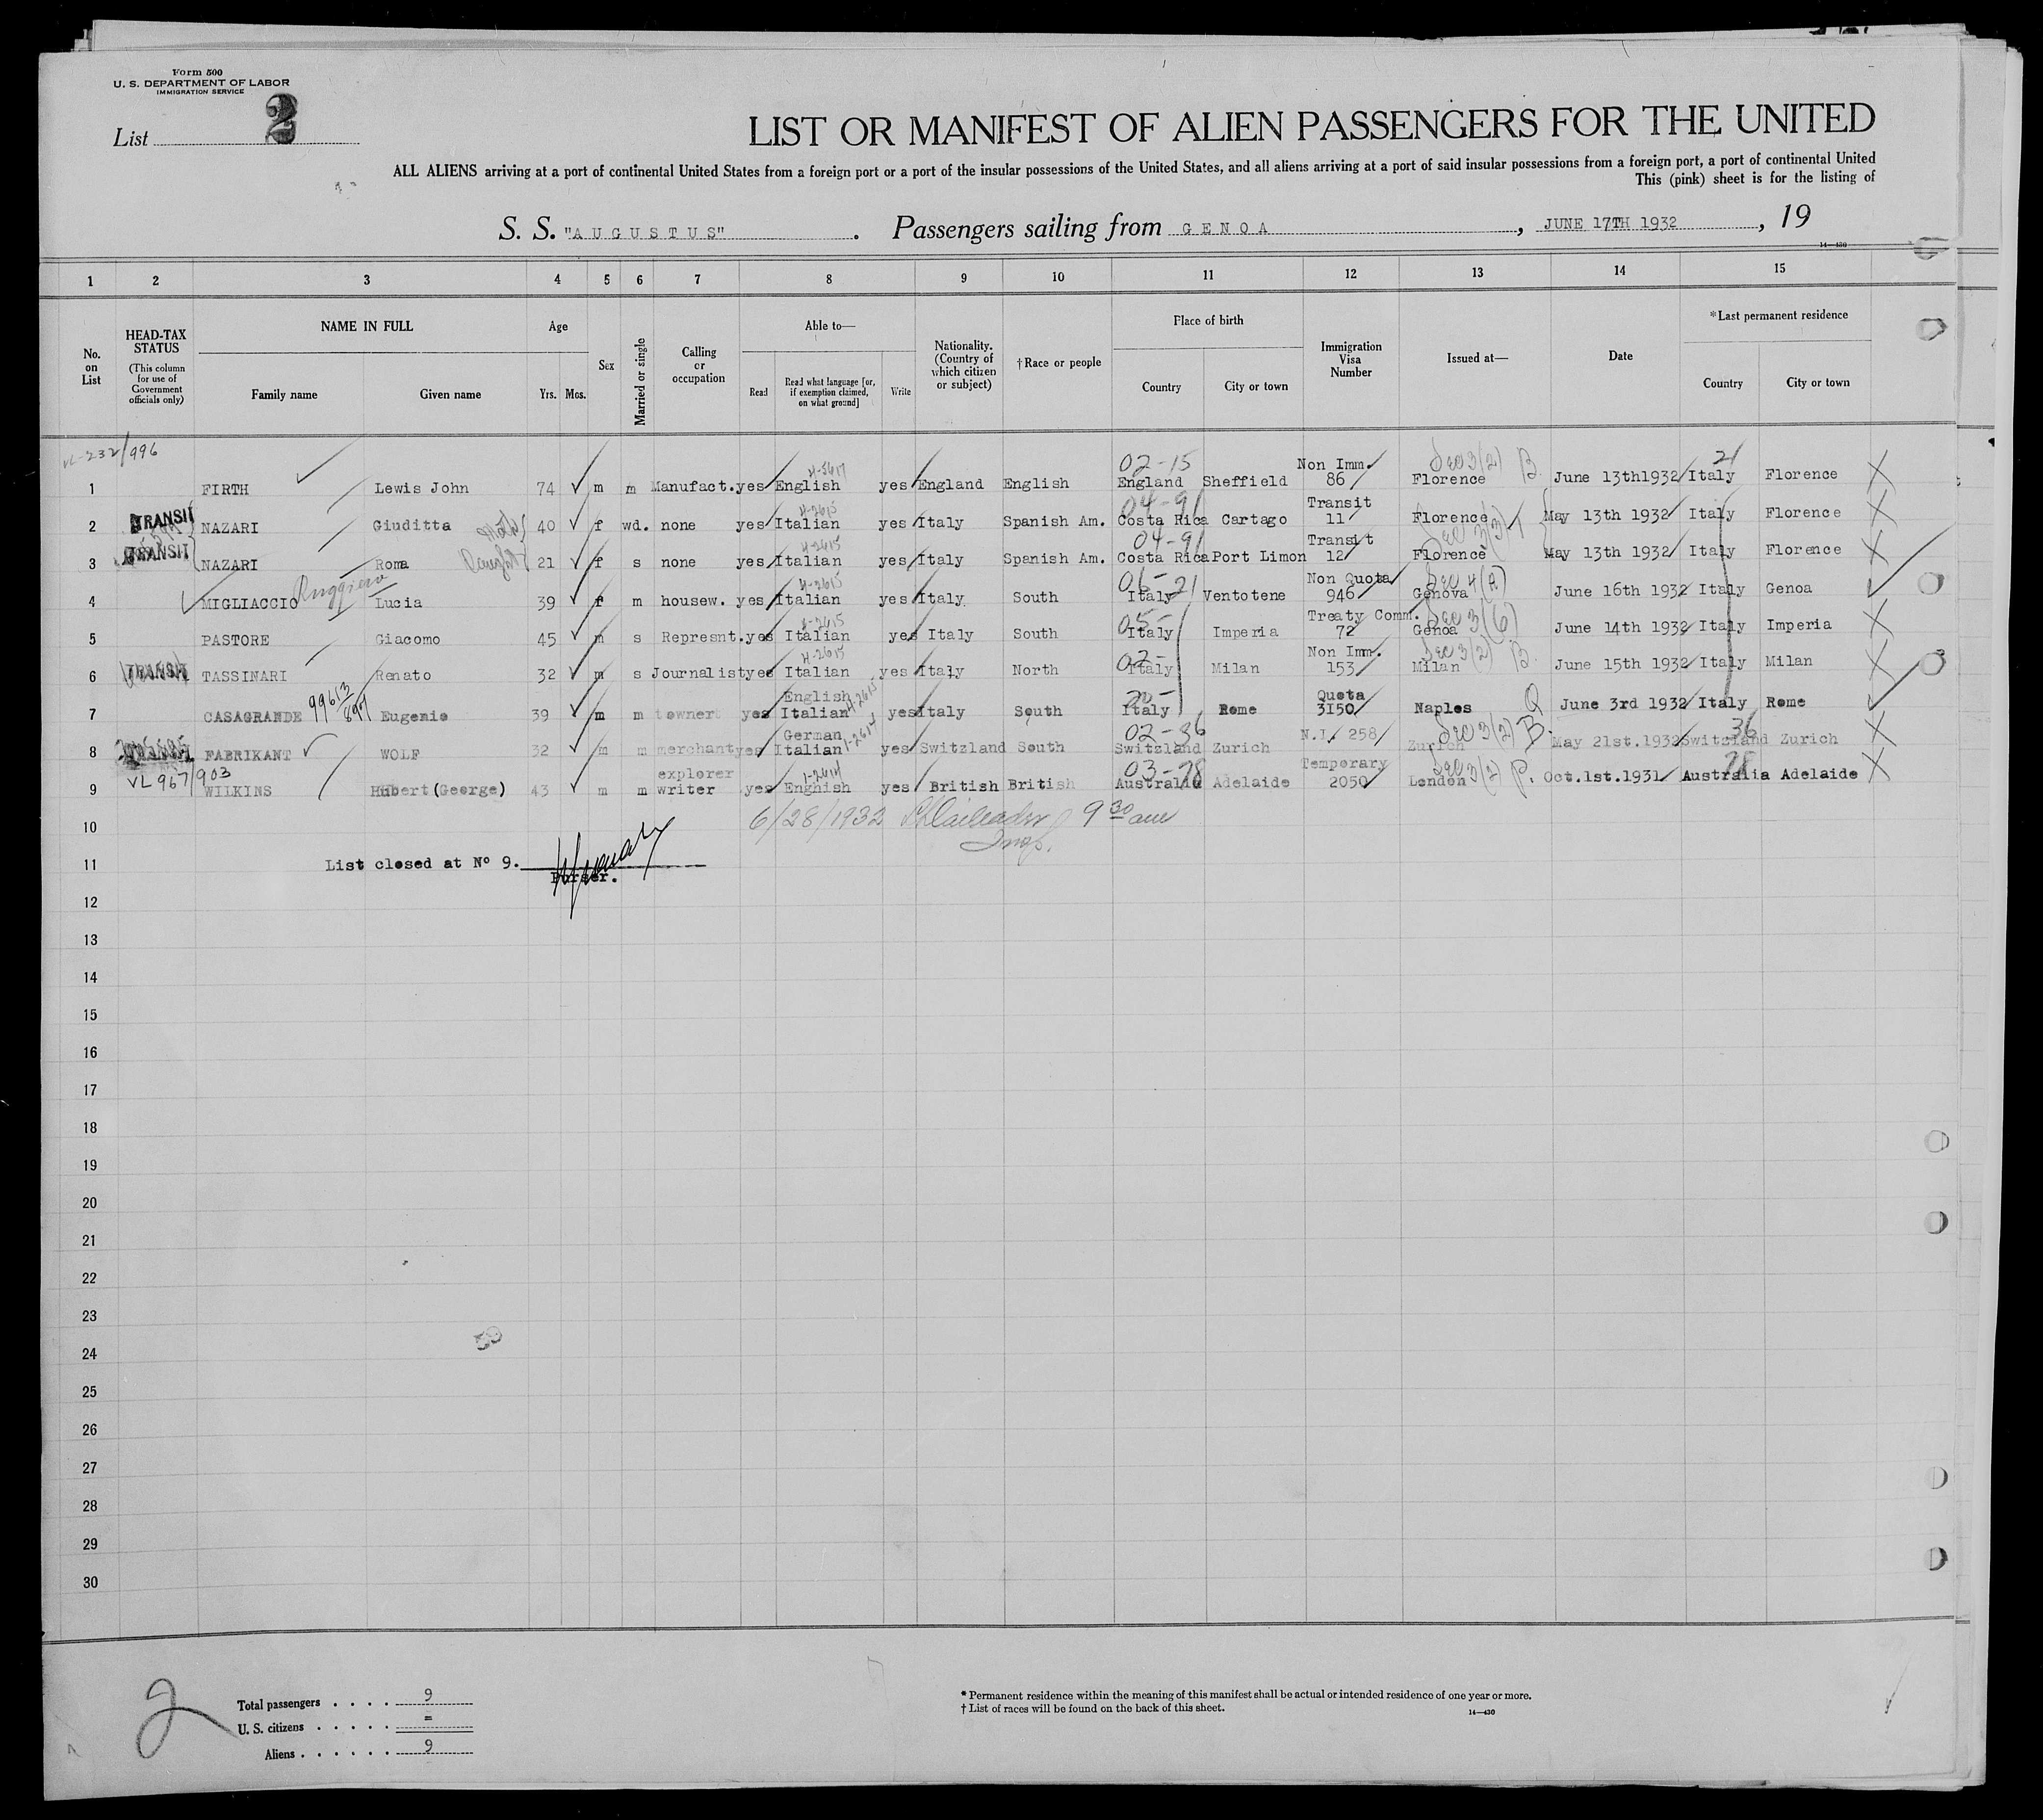 Form 500
U. S. DEPARTMENT OF LABOR
IMMIGRATION SERVICE
List 2
LIST OR MANIFEST OF ALIEN PASSENGERS FOR THE UNITED
ALL ALIENS arriving at a port of continental United States from a foreign port or a port of the insular possessions of the United States, and all aliens arriving at a port of said insular possessions from a foreign port, a port of continental United
This (pink) sheet is for the listing of
S. S. "AUGUSTUS" . Passengers sailing from GENOA , JUNE 17TH 1932 , 19
14—430
1 2 3 4 5 6 7 8 9 10 11 12 13 14 15
No. on List
HEAD-TAX STATUS (This column for use of Government officials only)
NAME IN FULL
Family name Given name
Age
Yrs. Mos.
Sex
Married or single
Calling or occupation
Able to—
Read
Read what language [or, if exemption claimed, on what ground]
Write
Nationality. (Country of which citizen or subject)
†Race or people
Place of birth
Country City or town
Immigration Visa Number
Issued at—
Date
*Last permanent residence
Country City or town
VL-232/996 4-3617 02-15 Non Imm. Sec 3(2) B. 21
1 FIRTH Lewis John 74 m m Manufact. yes English yes England English England Sheffield 86 Florence June 13th1932 Italy Florence X
TRANSIT 4-2615 04-91 Transit
2 NAZARI Giuditta 40 f wd. none yes Italian yes Italy Spanish Am. Costa Rica Cartago 11 Florence May 13th 1932 Italy Florence X
TRANSIT 4-2615 04-91 Transit Sec 3(3) T
3 NAZARI Roma Daught 21 f s none yes Italian yes Italy Spanish Am. Costa Rica Port Limon 12 Florence May 13th 1932 Italy Florence X
Ruggiero 4-2615 06-21 Non Quota Sec 4(A)
4 MIGLIACCIO Lucia 39 f m housew. yes Italian yes Italy South Italy Ventotene 946 Genova June 16th 1932 Italy Genoa
4-2615 05- Treaty Comm. Sec 3(6)
5 PASTORE Giacomo 45 m s Represnt. yes Italian yes Italy South Italy Imperia 72 Genoa June 14th 1932 Italy Imperia X
TRANSIT 4-2615 02- Non Imm. Sec 3(2) B.
6 TASSINARI Renato 32 m s Journalist yes Italian yes Italy North Italy Milan 153 Milan June 15th 1932 Italy Milan X
99613/897 English 4-2615 20- Quota Q
7 CASAGRANDE Eugenio 39 m m towner yes Italian yes Italy South Italy Rome 3150 Naples June 3rd 1932 Italy Rome
German 1-2614 02-36 N.I. 258 Sec 3(2) B. 36
8 FABRIKANT WOLF 32 m m merchant yes Italian yes Switzland South Switzland Zurich Zurich May 21st.1932 Switzland Zurich X
VL 967/903 explorer 1-2614 03-78 Temporary Sec 3(2) P. 78
9 WILKINS Hubert (George) 43 m m writer yes Enghish yes British British Australia Adelaide 2050 London Oct.1st.1931 Australia Adelaide X
10 6/28/1932 9 30 am
Insp.
11 List closed at No 9.
Purser.
12
13
14
15
16
17
18
19
20
21
22
23
24
25
26
27
28
29
30
2
Total passengers . . . . 9
U. S. citizens . . . . . =
Aliens . . . . . . 9
* Permanent residence within the meaning of this manifest shall be actual or intended residence of one year or more.
† List of races will be found on the back of this sheet.
14—430